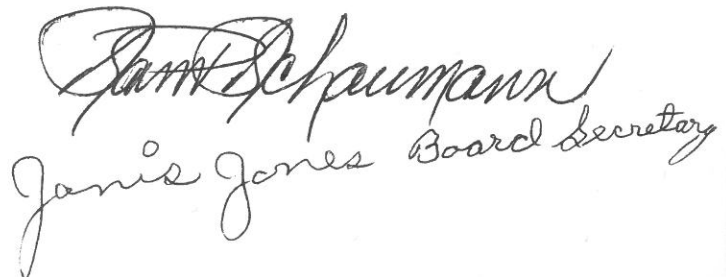 Sam D Schaumann
Janis Jones Board Secretary